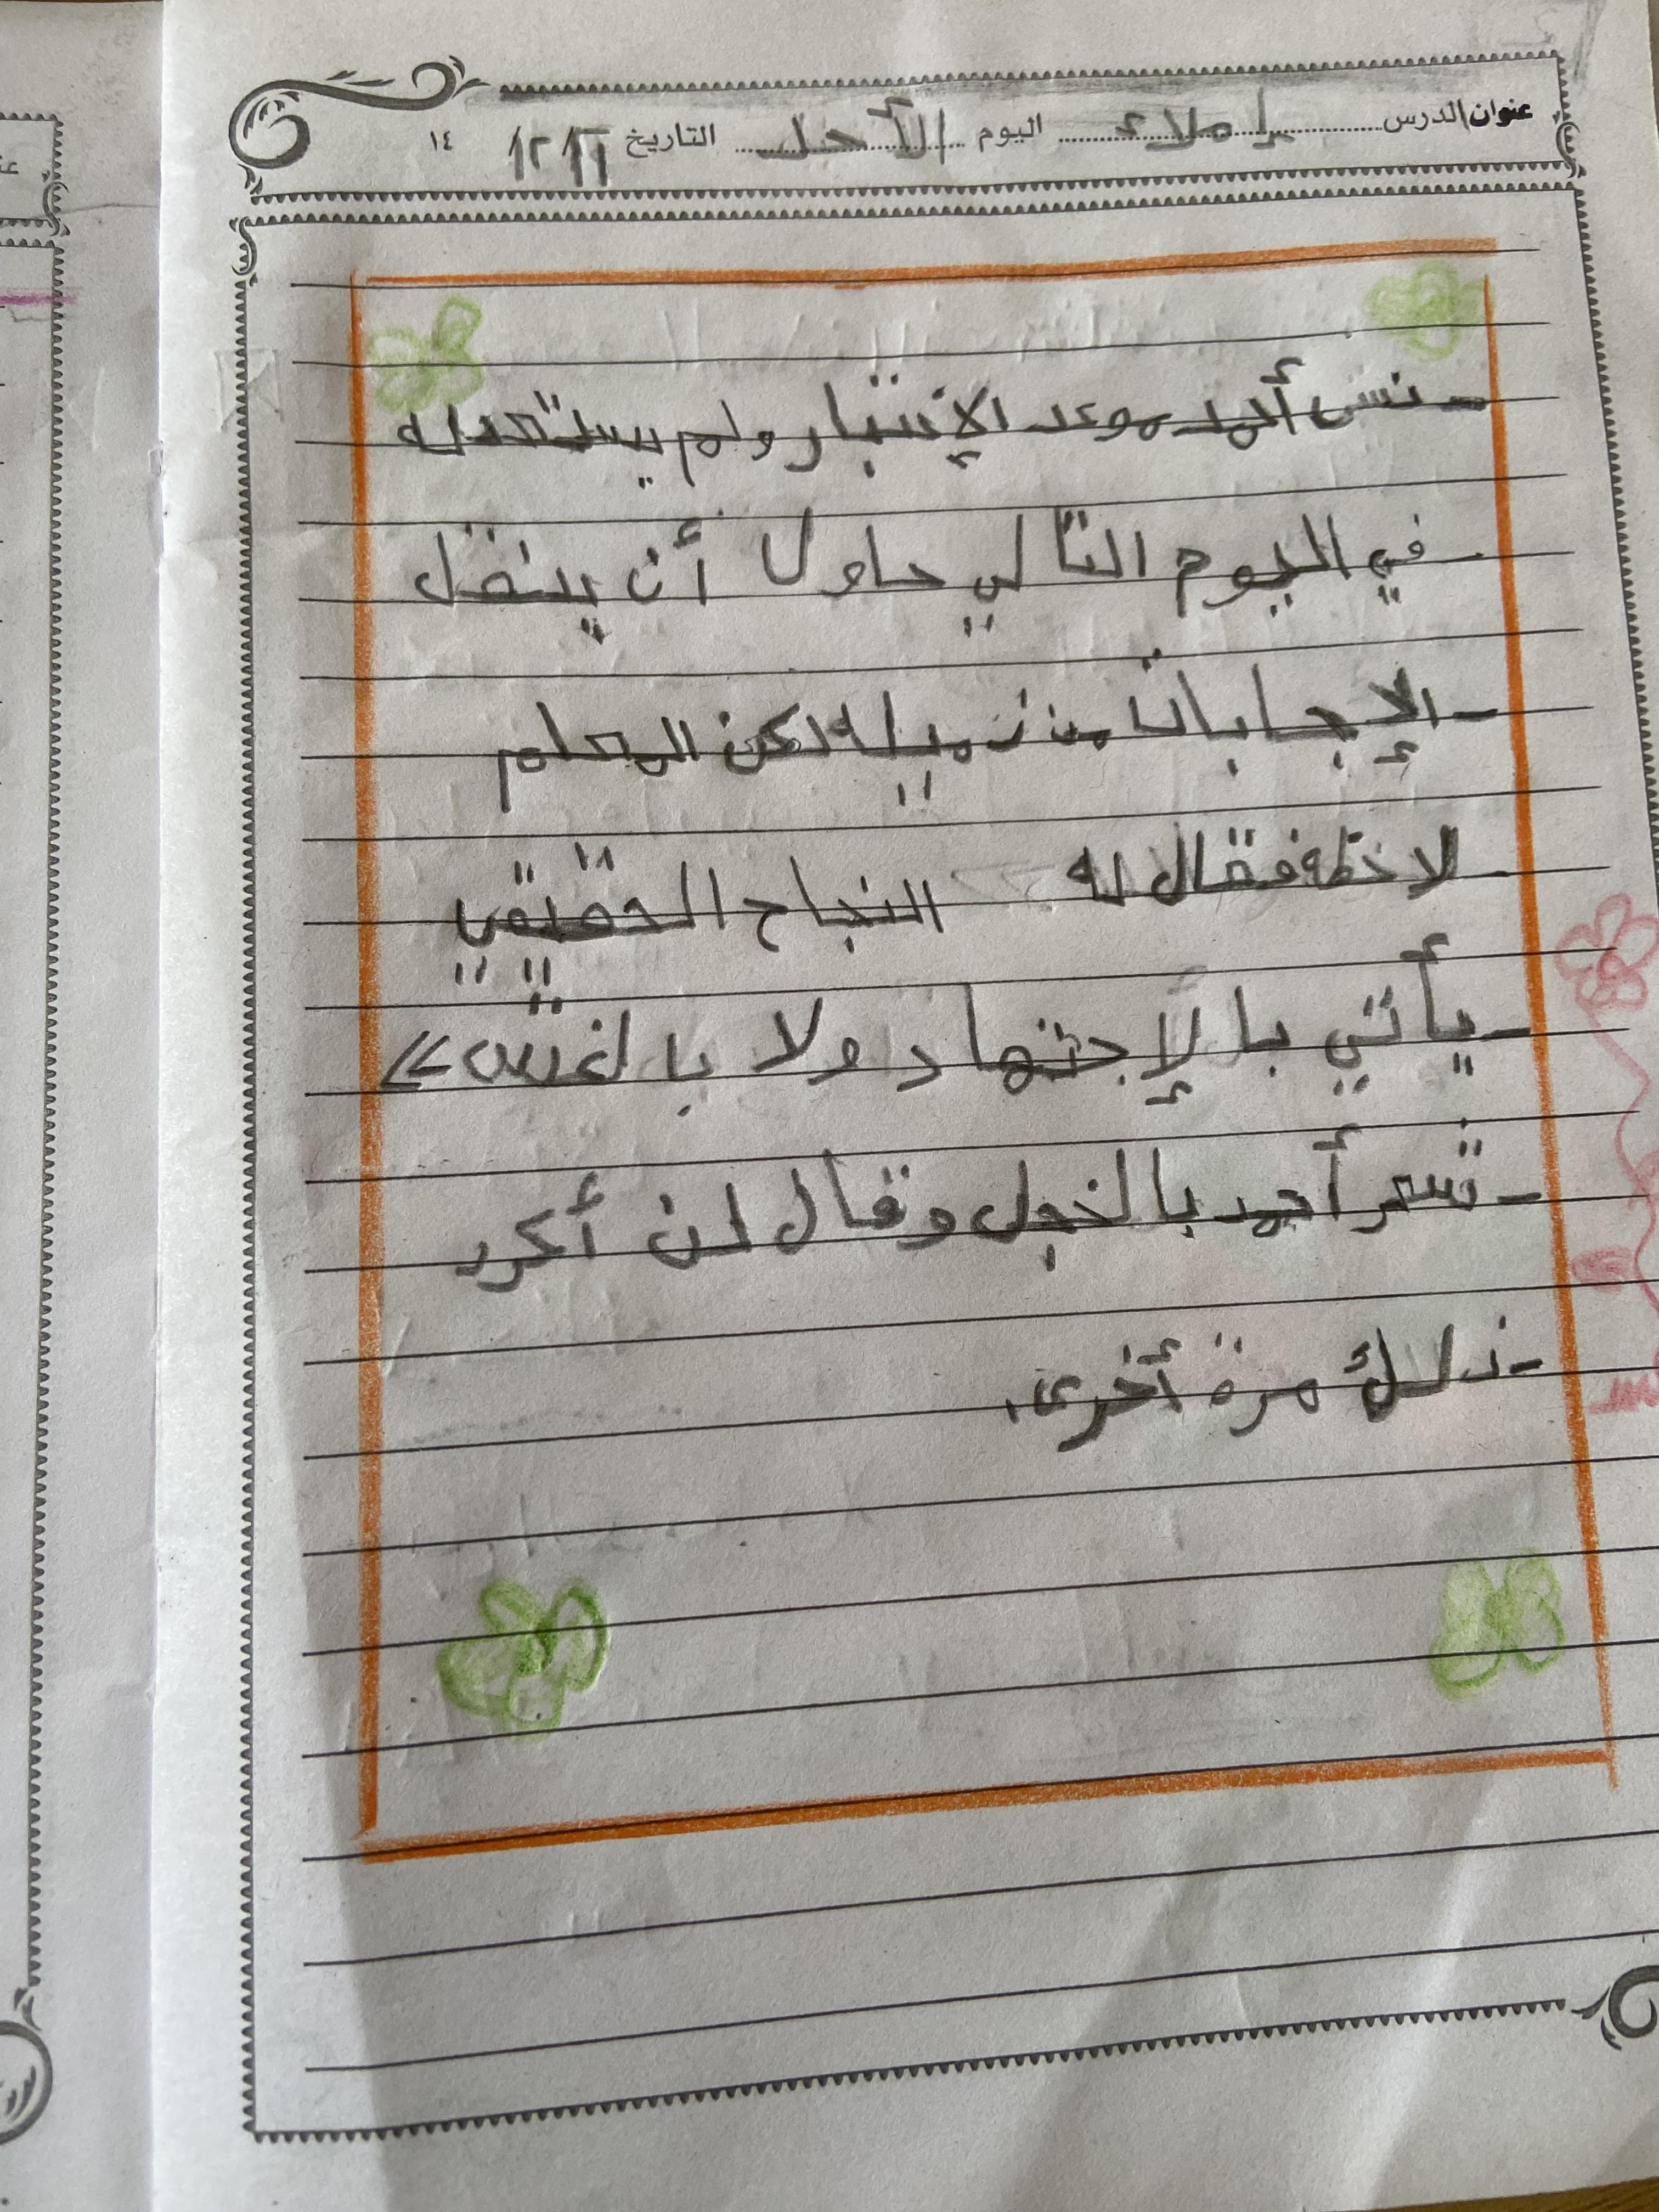 عنوان الدرس إملاء اليوم الأحد التاريخ ١٤
- نسى أحمد موعد الإختبار ولم يستعد له
- في اليوم التالي حاول أن ينقل
- الإجابات من زميله لكن المعلم
- لاحظه فقال له النجاح الحقيقي
- يأتي بالإجتهاد ولا بالغش »
- شعر أحمد بالخجل وقال لن أكرر
- ذلك مرة أخرى.